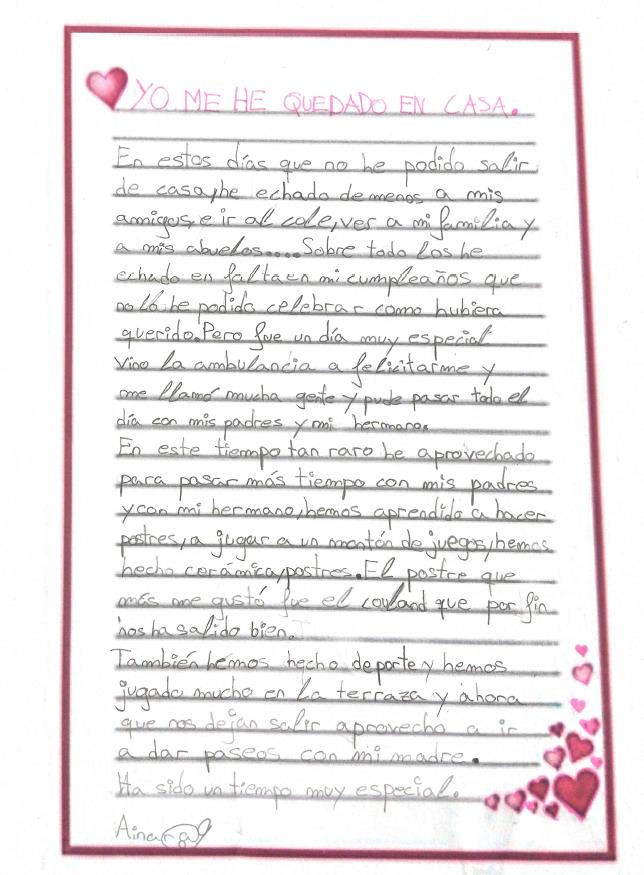 YO ME HE QUEDADO EN CASA.
En estos días que no he podido salir
de casa, he echado de menos a mis
amigos, e ir al cole, ver a mi familia y
a mis abuelos.... Sobre todo los he
echado en falta en mi cumpleaños que
no lo he podido celebrar como hubiera
querido. Pero fue un día muy especial
vino la ambulancia a felicitarme y
me llamó mucha gente y pude pasar todo el
día con mis padres y mi hermano.
En este tiempo tan raro he aprovechado
para pasar más tiempo con mis padres
y con mi hermano, hemos aprendido a hacer
postres, a jugar a un montón de juegos, hemos
hecho cerámica, postres. El postre que
más me gustó fue el couland que por fin
nos ha salido bien.
También hemos hecho deporte y hemos
jugado mucho en la terraza y ahora
que nos dejan salir aprovecho a ir
a dar paseos con mi madre.
Ha sido un tiempo muy especial.
Ainara